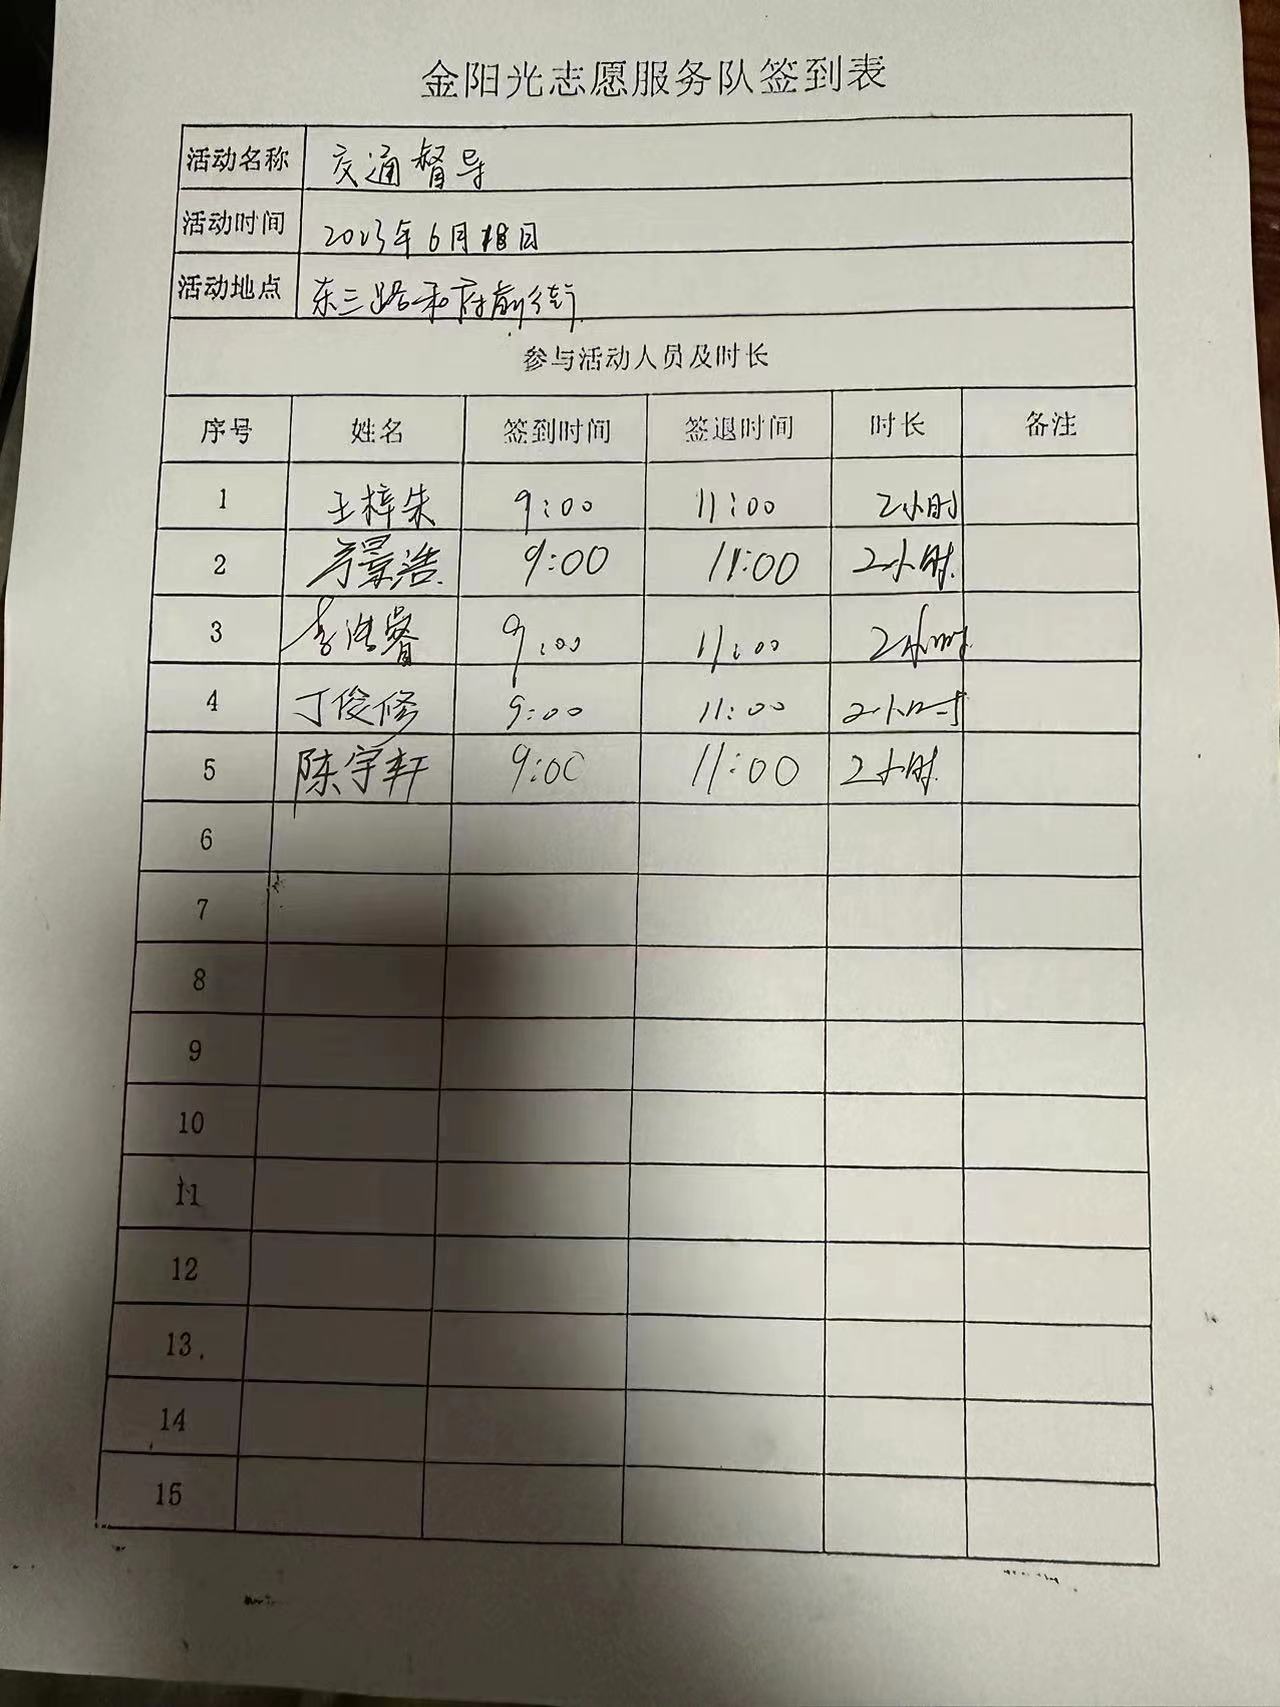 金阳光志愿服务队签到表
活动名称 交通督导
活动时间 2023年6月18日
活动地点 东三路和府前街
参与活动人员及时长
序号 姓名 签到时间 签退时间 时长 备注
1 王梓朱 9:00 11:00 2小时
2 景浩 9:00 11:00 2小时
3 李浩睿 9:00 11:00 2小时
4 丁俊修 9:00 11:00 2小时
5 陈宇轩 9:00 11:00 2小时
6
7
8
9
10
11
12
13
14
15